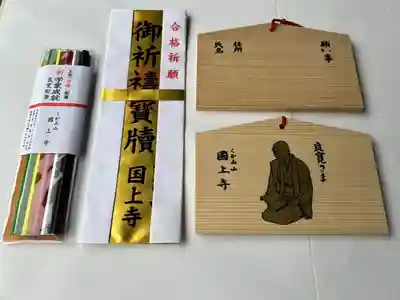 学業成就
良寛鉛筆
くがみ山
国上寺
合格祈願
御祈禱寳牘
国上寺
願い事
住所
氏名
良寛さま
くがみ山
国上寺